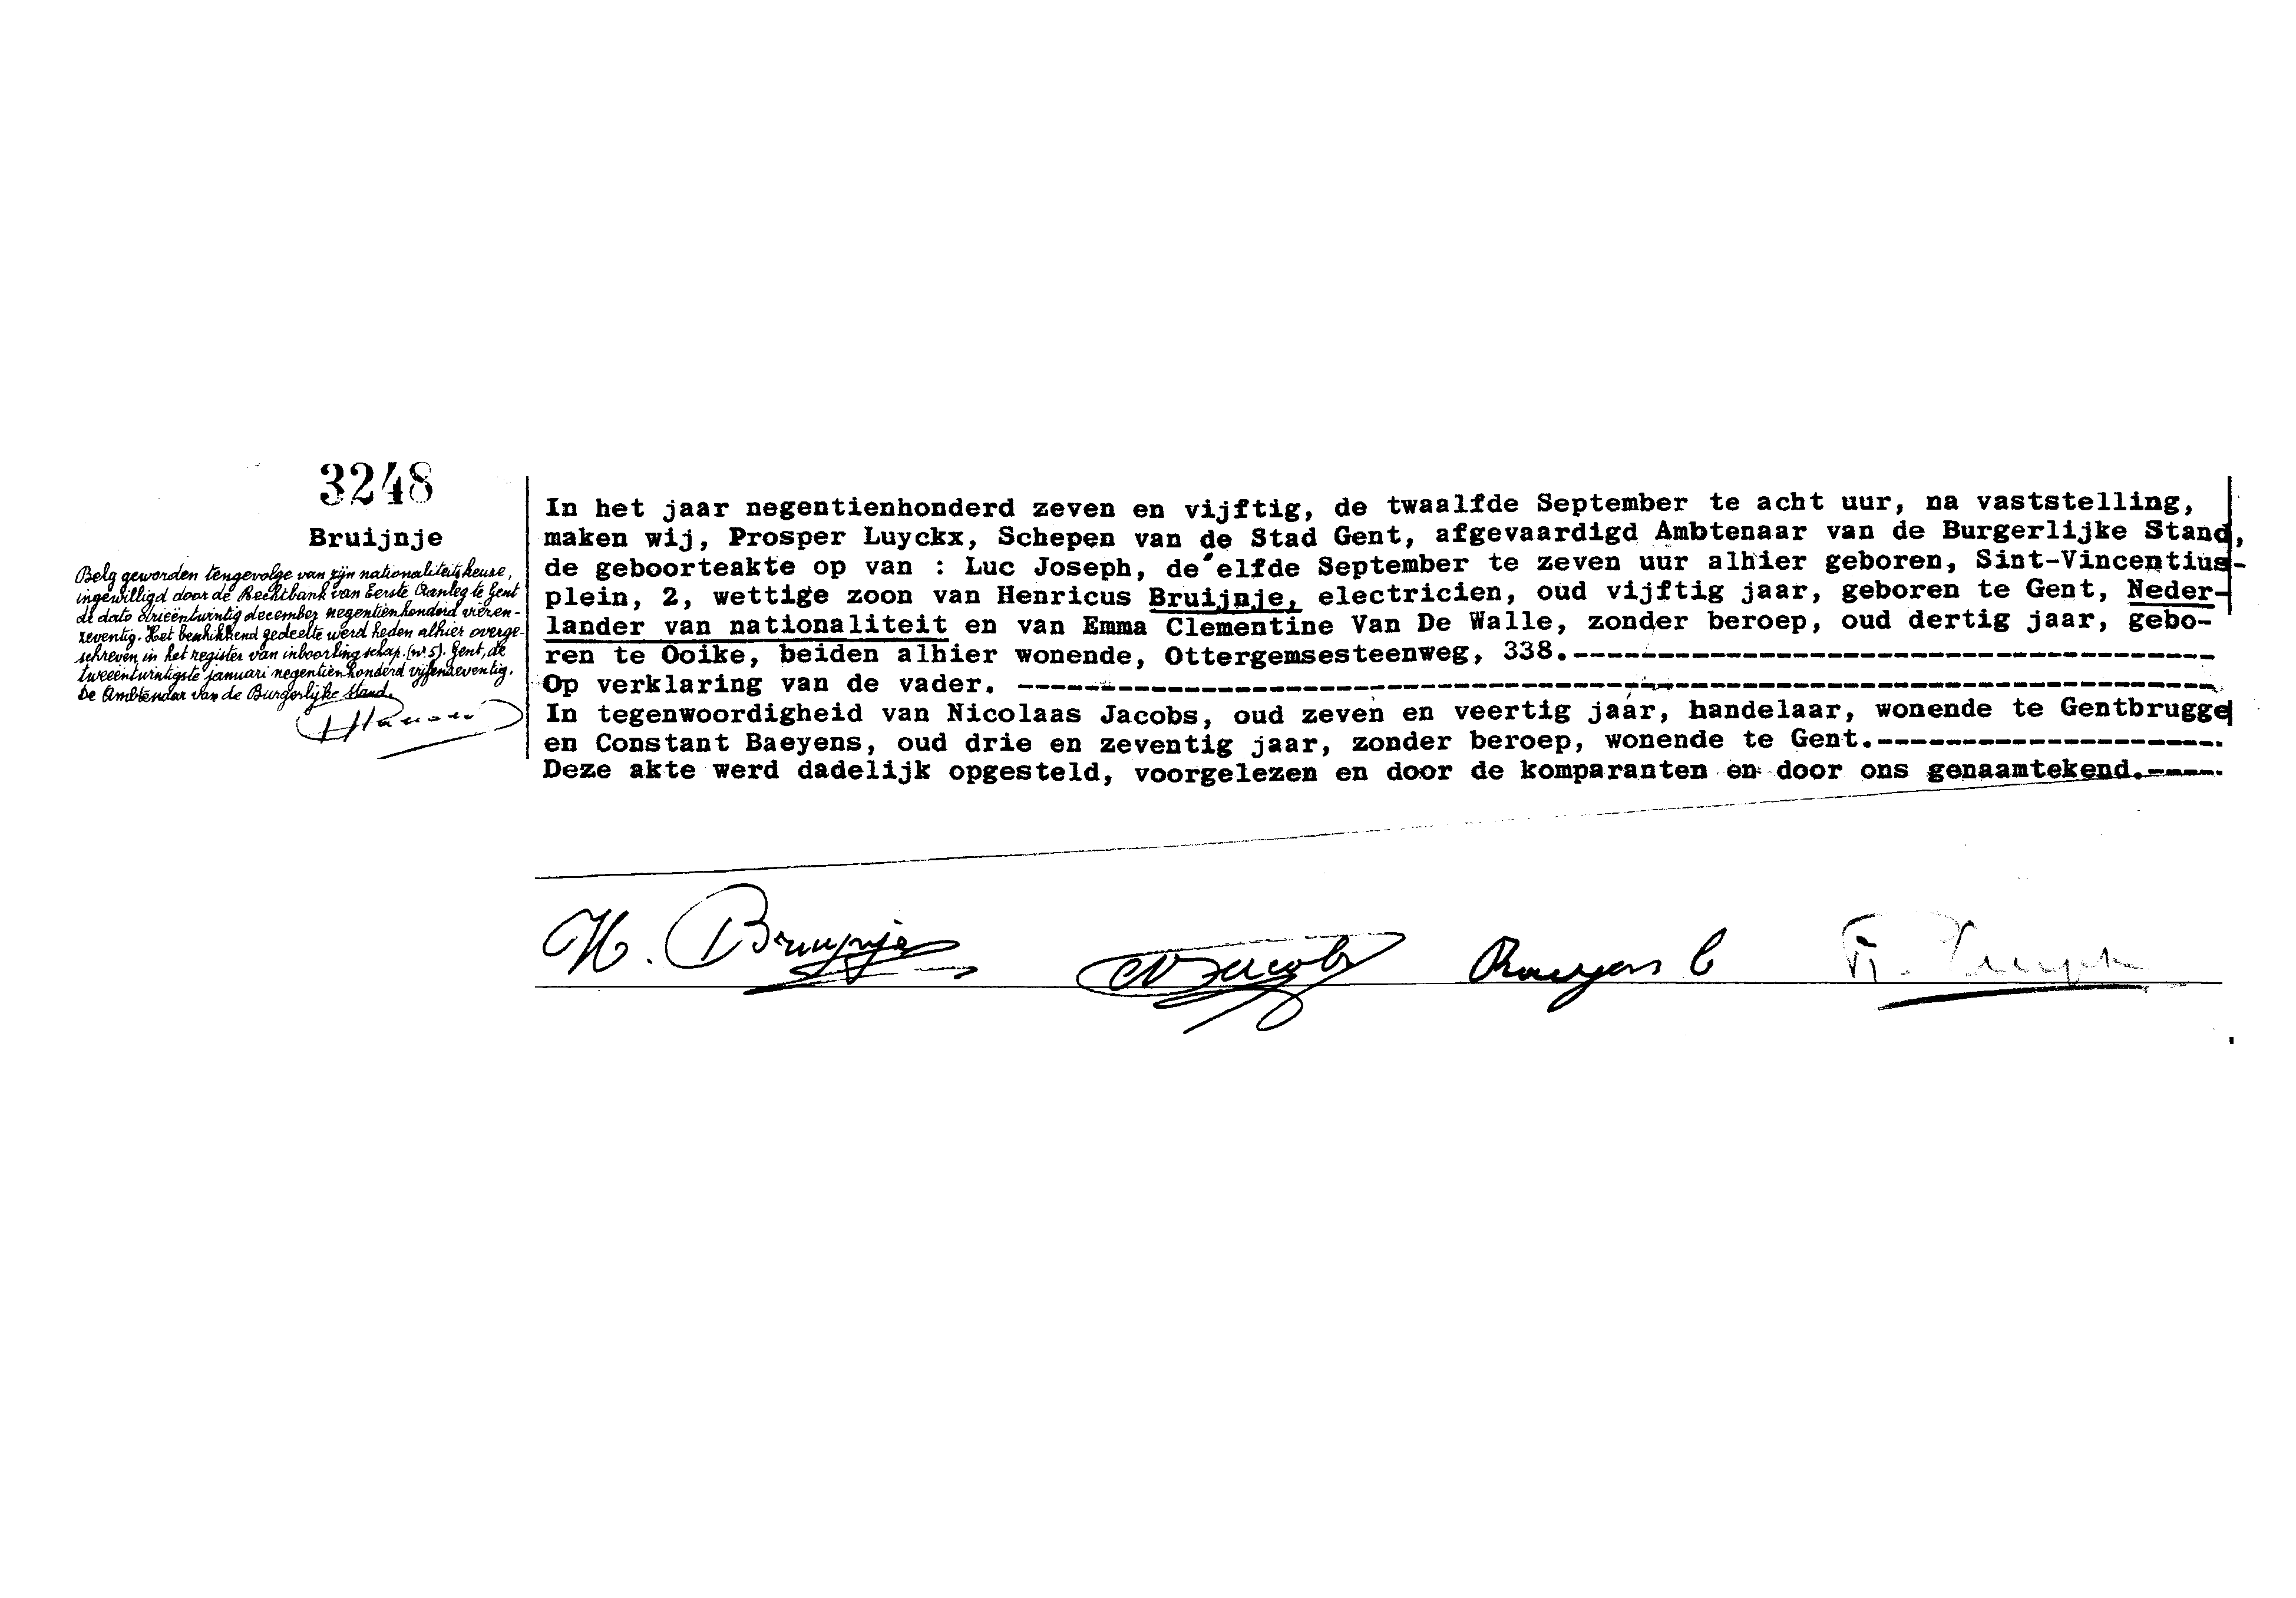 3248
Bruijnje
Belg geworden tengevolge van zijn nationaliteitskeuze,
ingewilligd door de Rechtbank van Eerste Aanleg te Gent
de dato drieëntwintig december negentienhonderd vieren-
zeventig. Het beschikkend gedeelte werd heden alhier overge-
schreven in het register van inboorlingschap. (nr. 5). Gent, de
tweeëntwintigste januari negentienhonderd vijfenzeventig.
De Ambtenaar van de Burgerlijke Stand.
In het jaar negentienhonderd zeven en vijftig, de twaalfde September te acht uur, na vaststelling,
maken wij, Prosper Luyckx, Schepen van de Stad Gent, afgevaardigd Ambtenaar van de Burgerlijke Stand,
de geboorteakte op van : Luc Joseph, de elfde September te zeven uur alhier geboren, Sint-Vincentius-
plein, 2, wettige zoon van Henricus Bruijnje, electricien, oud vijftig jaar, geboren te Gent, Neder-
lander van nationaliteit en van Emma Clementine Van De Walle, zonder beroep, oud dertig jaar, gebo-
ren te Ooike, beiden alhier wonende, Ottergemsesteenweg, 338.
Op verklaring van de vader.
In tegenwoordigheid van Nicolaas Jacobs, oud zeven en veertig jaar, handelaar, wonende te Gentbrugge
en Constant Baeyens, oud drie en zeventig jaar, zonder beroep, wonende te Gent.
Deze akte werd dadelijk opgesteld, voorgelezen en door de komparanten en door ons genaamtekend.
H. Bruynje N Jacobs Baeyens C